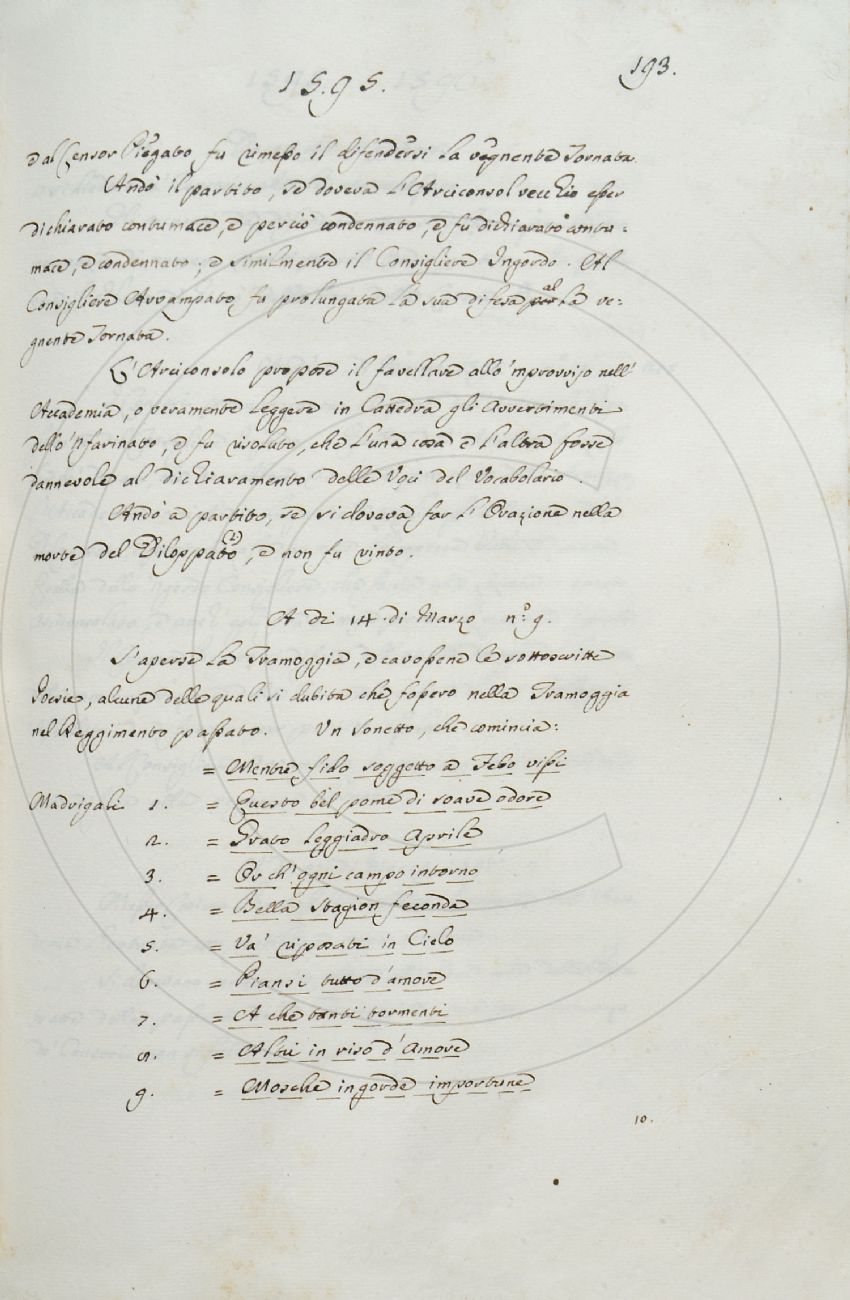 1595.
193.
dal Censor Piegato fu rimesso il difendersi la vegnente Tornata.
Andò il partito, se doveva l'Arciconsol vecchio esser
dichiarato contumace, e perciò condennato, e fu dichiarato contu=
mace, e condennato; e similmente il Consigliere Ingordo. Al
Consigliere Avvampato fu prolungata la sua difesa al la ve=
gnente Tornata.
L'Arciconsolo propose il favellare allo 'mprovviso nell'
Accademia, o veramente leggere in Cattedra gli Avvertimenti
dello 'Nfarinato, e fu risoluto, che l'una cosa e l'altra fosse
dannevole al dichiaramento delle Voci del Vocabolario.
Andò a partito, se si doveva far l'Orazione nella
morte del Diloppato, e non fu vinto.
A dì 14. di Marzo n.° 9.
S'aperse la Tramoggia, e cavossene le sottoscritte
Poesie, alcune delle quali si dubita che fossero nella Tramoggia
nel Reggimento passato. Un sonetto, che comincia:
= Mentre fido soggetto a Febo vissi
Madrigali 1. = Questo bel pome di soave odore
2. = Grato leggiadro Aprile
3. = Or ch'ogni campo intorno
4. = Bella stagion feconda
5. = Va' riposati in Cielo
6. = Piansi tutto d'amore
7. = A che tanti tormenti
8. = Altri in riso d'Amore
9. = Mosche ingorde importune
10.